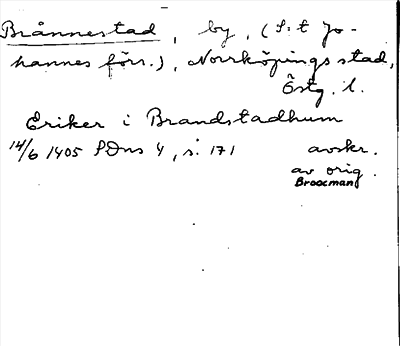 Brånnestad, by, (S:t Jo-
hannes förs.), Norrköpings stad,
Östg. l.
Eriker i Brandstadhum
14/6 1405 SDns 4, s. 171 avskr.
av orig.
Broocman